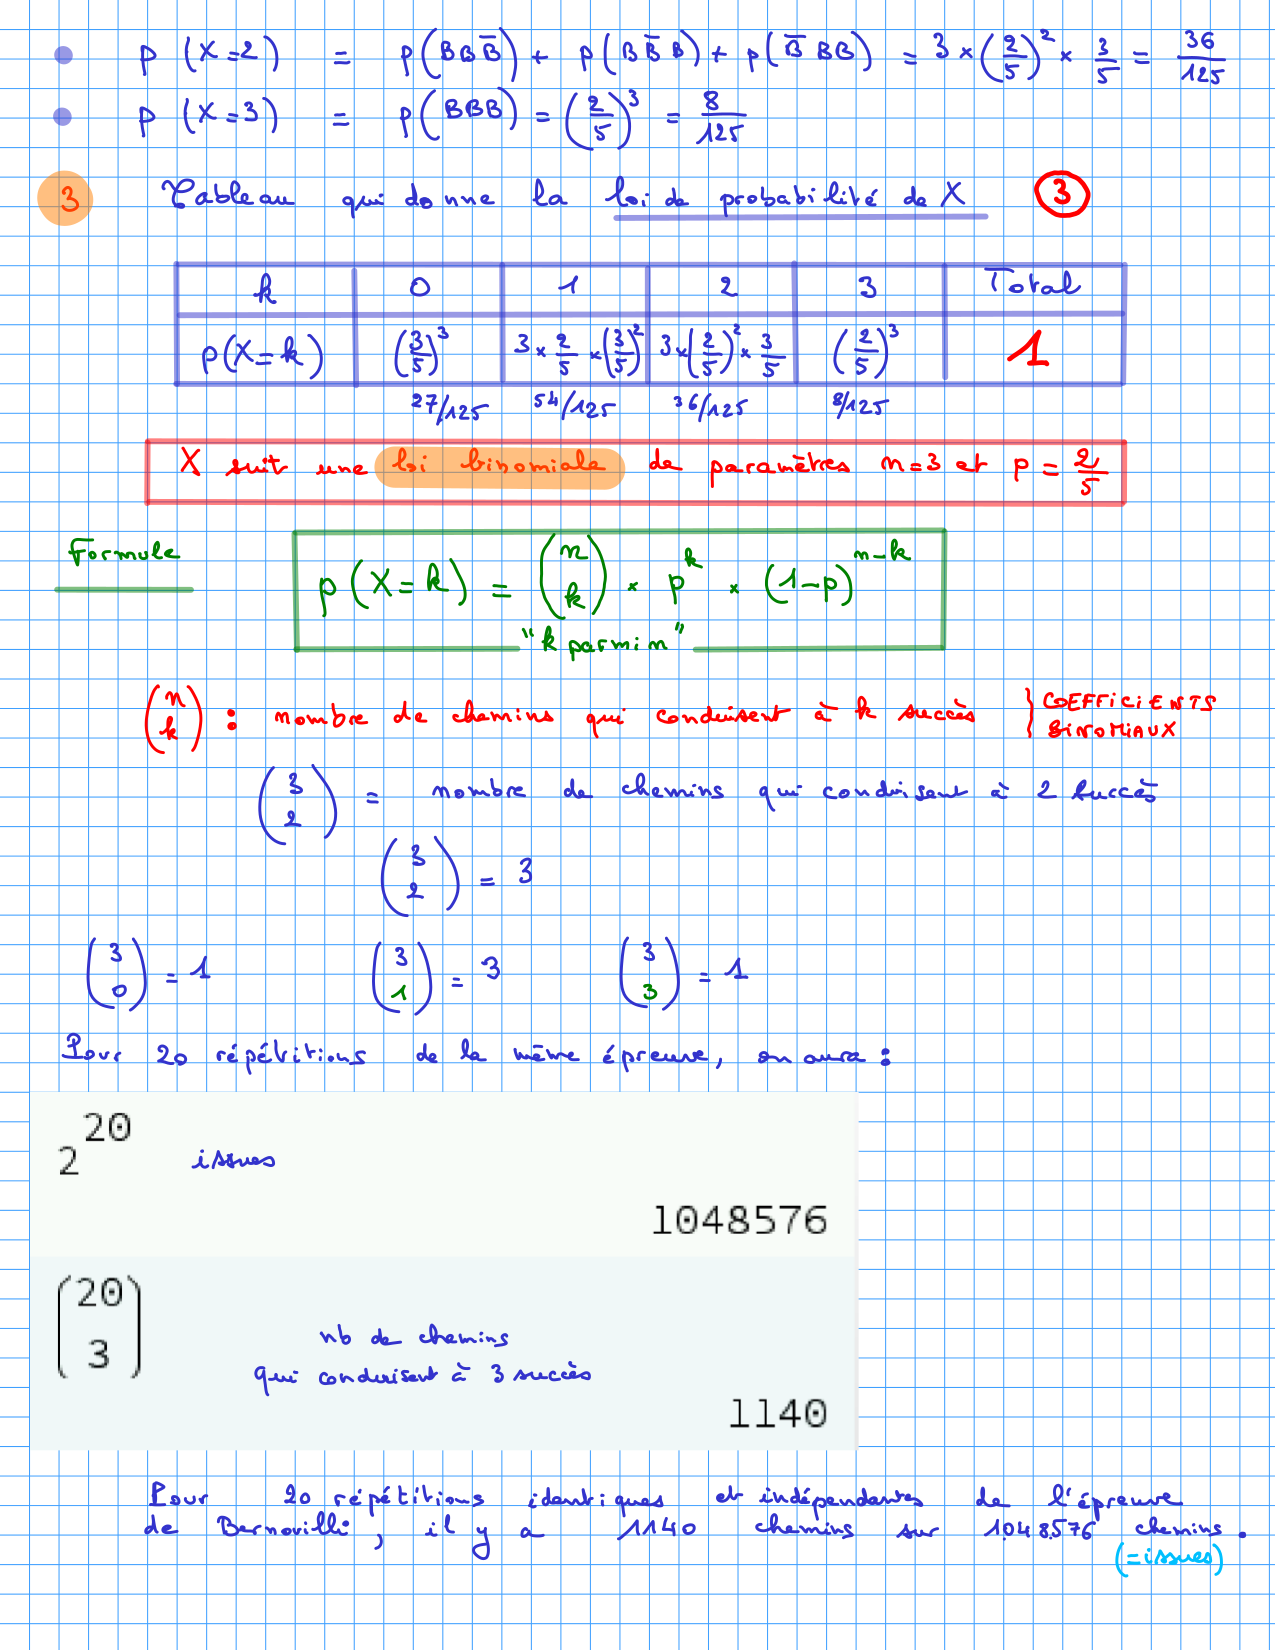 • p (X=2) = p(BBB̅) + p(BB̅B) + p(B̅BB) = 3 × (2/5)² × 3/5 = 36/125
• p (X=3) = p(BBB) = (2/5)³ = 8/125
3 Tableau qui donne la loi de probabilité de X 3
k 0 1 2 3 Total
p(X=k) (3/5)³ 3 × 2/5 × (3/5)² 3×(2/5)² × 3/5 (2/5)³ 1
27/125 54/125 36/125 8/125
X suit une loi binomiale de paramètres n=3 et p = 2/5
Formule p (X=k) = (n k) × p^k × (1-p)^(n-k)
"k parmi n"
(n k) : nombre de chemins qui conduisent à k succès } COEFFICIENTS BINOMIAUX
(3 2) = nombre de chemins qui conduisent à 2 succès
(3 2) = 3
(3 0) = 1 (3 1) = 3 (3 3) = 1
Pour 20 répétitions de la même épreuve, on aura :
2^20 issues
1048576
(20 3) nb de chemins
qui conduisent à 3 succès
1140
Pour 20 répétitions identiques et indépendantes de l'épreuve
de Bernouilli, il y a 1140 chemins sur 1.048.576 chemins.
(=issues)